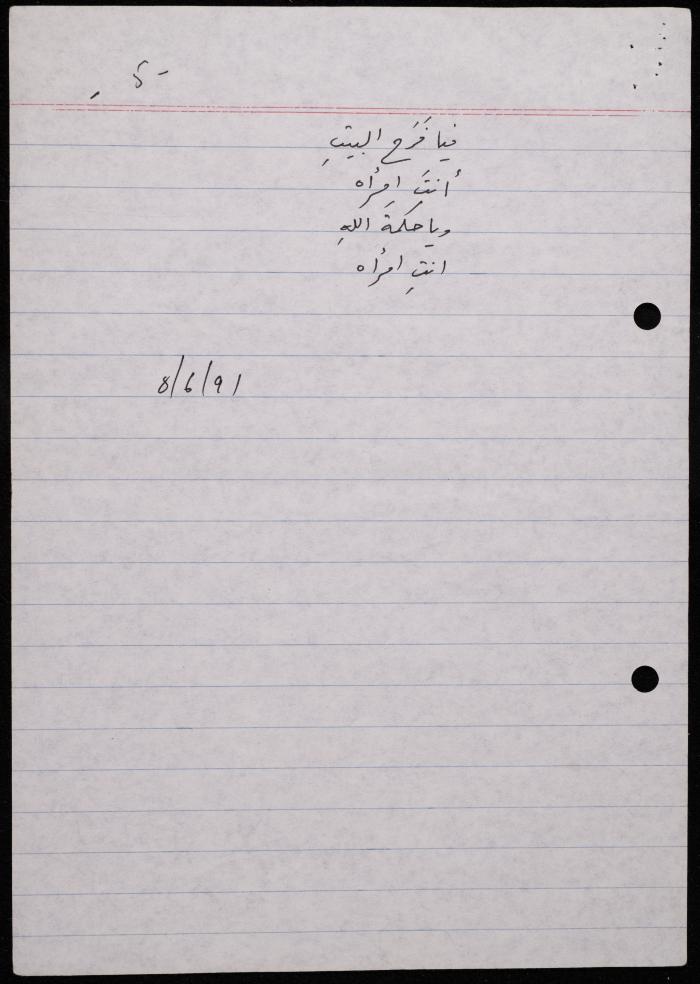 - 5 -
فيا فَرَح البيتِ
أنتَ امرأه
وياحكمةَ اللهِ
انتِ امرأه
8/6/91